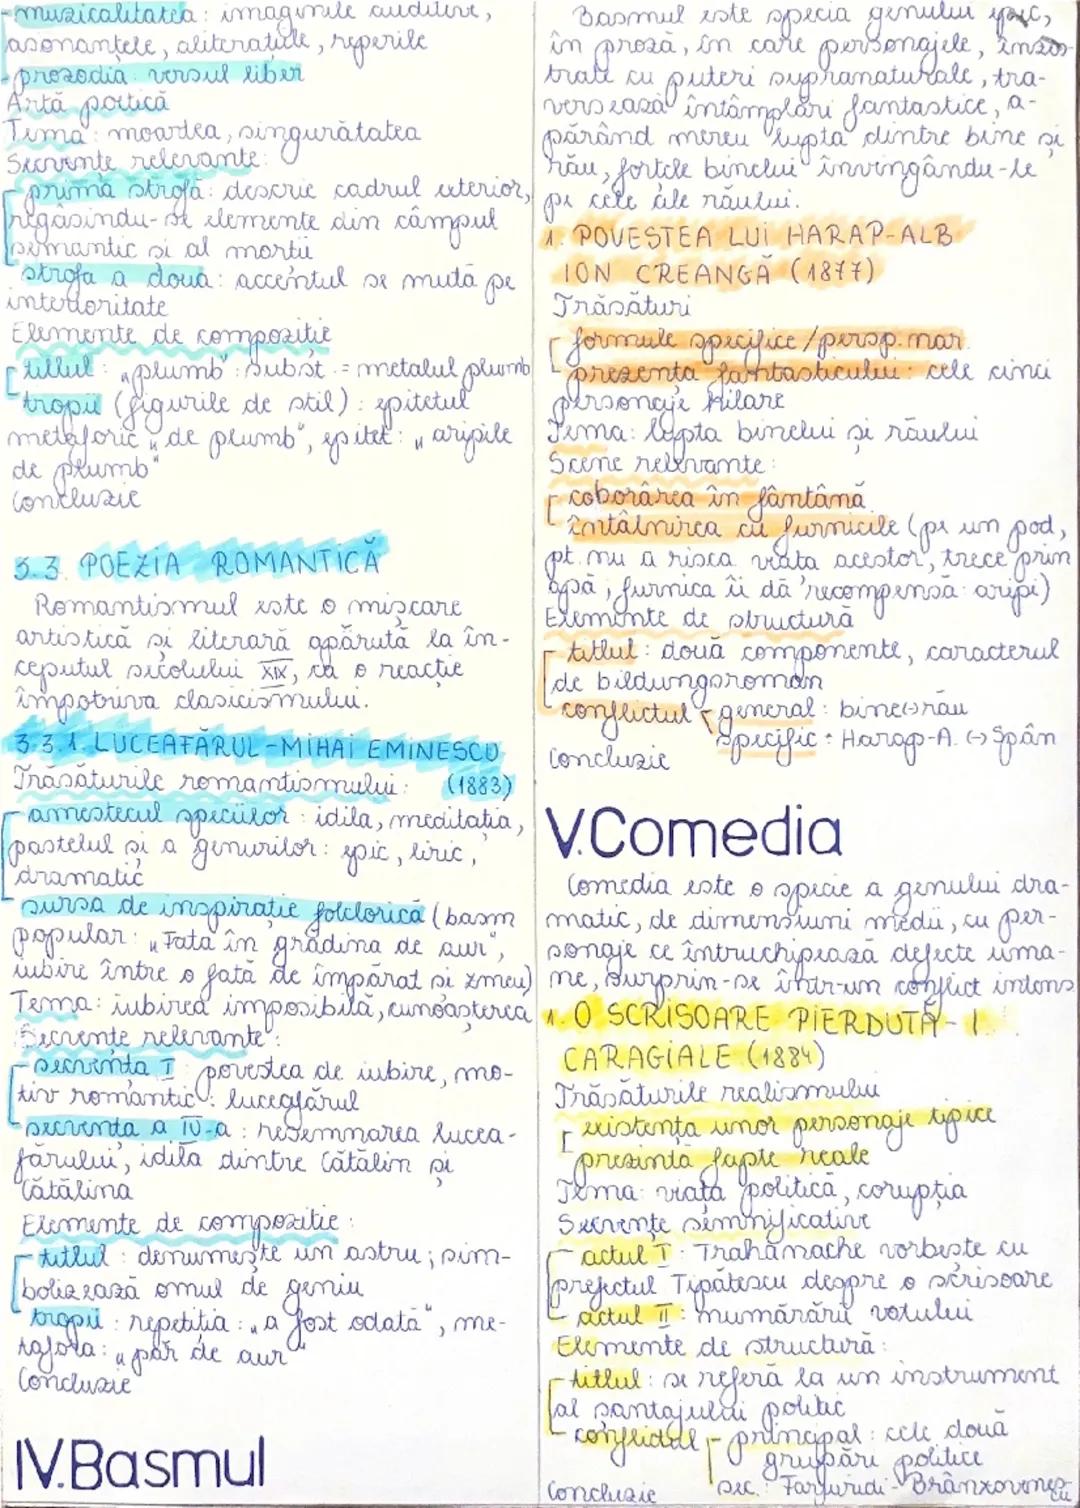 -muzicalitatea: imaginile auditive,
asonanțele, aliterațiile, reperile
-prozodia: versul liber
Artă poetică
Tema: moartea, singurătatea
Secvențe relevante:
prima strofă: descrie cadrul exterior,
regăsindu-se elemente din câmpul
semantic și al morții
strofa a doua: accentul se mută pe
interioritate
Elemente de compoziție
titlul: „plumb": subst. = metalul plumb
tropii (figurile de stil): epitetul
metaforic „de plumb", epitet: „aripile
de plumb"
Concluzie
3.3. POEZIA ROMANTICĂ
Romantismul este o mișcare
artistică și literară apărută la în-
ceputul secolului XIX, ca o reacție
împotriva clasicismului.
3.3.1. LUCEAFĂRUL-MIHAI EMINESCU
Trăsăturile romantismului: (1883)
amestecul speciilor: idila, meditația,
pastelul și a genurilor: epic, liric,
dramatic
sursa de inspirație folclorică (basm
popular: „Fata în grădina de aur",
iubire între o fată de împărat și zmeu)
Tema: iubirea imposibilă, cunoașterea
Secvențe relevante:
-secvența I: povestea de iubire, mo-
tiv romantic: luceafărul
-secvența a IV-a: resemnarea lucea-
fărului, idila dintre Cătălin și
Cătălina
Elemente de compoziție:
titlul: denumește un astru; sim-
bolizează omul de geniu
tropii: repetiția: „a fost odată", me-
tafora: „păr de aur"
Concluzie
IV.Basmul
Basmul este specia genului epic,
în proză, în care personajele, înzes-
trate cu puteri supranaturale, tra-
versează întâmplări fantastice, a-
părând mereu lupta dintre bine și
rău, forțele binelui învingându-le
pe cele ale răului.
1. POVESTEA LUI HARAP-ALB
ION CREANGĂ (1877)
Trăsături
formule specifice/persp. nar.
prezența fantasticului: cele cinci
personaje hilare
Tema: lupta binelui și răului
Scene relevante:
coborârea în fântână
întâlnirea cu furnicile (pe un pod,
pt. nu a risca viața acestor, trece prin
apă; furnica îi dă recompensă: aripi)
Elemente de structură
titlul: două componente, caracterul
de bildungsroman
conflictul general: bine↔rău
specific: Harap-A. ↔ Spân
Concluzie
V.Comedia
Comedia este o specie a genului dra-
matic, de dimensiuni medii, cu per-
sonaje ce întruchipează defecte uma-
ne, surprin-se într-un conflict intens
1. O SCRISOARE PIERDUTĂ- I.
CARAGIALE (1884)
Trăsăturile realismului
existența unor personaje tipice
prezintă fapte reale
Tema: viața politică, corupția
Secvențe semnificative
actul I: Trahanache vorbește cu
prefectul Tipătescu despre o scrisoare
actul II: numărării votului
Elemente de structură:
titlul: se referă la un instrument
al șantajului politic
conflictul - principal: cele două
grupări politice
sec.: Farfuridi-Brânzovenes-
cu
Concluzie